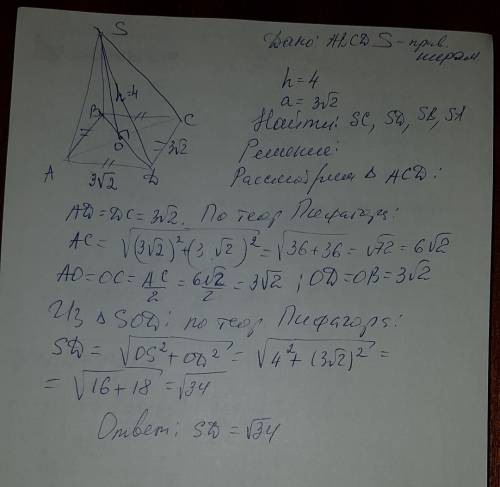 S
Дано: ABCDS - прав.
пирам.
h=4
h=4
a=3√2
Найти: SC, SD, SB, SA
B
C
=3√2
O
Решение:
A
D
3√2
Рассмотрим Δ ACD:
AD=DC=3√2. По теор Пифагора:
AC=√(3√2)²+(3√2)²=√36+36=√72=6√2
AO=OC=AC/2=6√2/2=3√2; OD=OB=3√2
Из Δ SOD: по теор Пифагора:
SD=√OS²+OD²=√4²+(3√2)²=
=√16+18=√34
Ответ: SD=√34